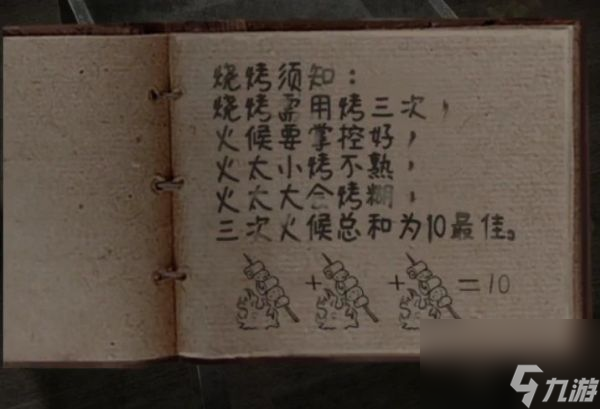 烧烤须知：
烧烤需用烤三次，
火候要掌控好，
火太小烤不熟，
火太大会烤糊，
三次火候总和为10最佳。
+ + =10
九游